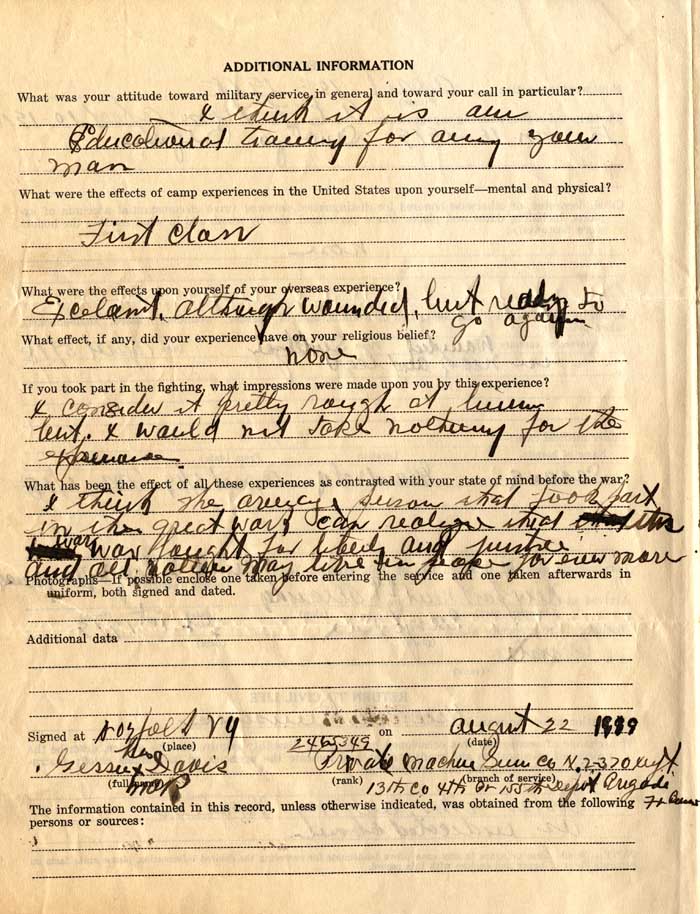 ADDITIONAL INFORMATION
What was your attitude toward military service in general and toward your call in particular?
I think it is an
Educational traning for any youn
man
What were the effects of camp experiences in the United States upon yourself—mental and physical?
First Class
What were the effects upon yourself of your overseas experience?
Excelant, although wounded, but ready to
go again
What effect, if any, did your experience have on your religious belief?
none
If you took part in the fighting, what impressions were made upon you by this experience?
I consider it pretty rough at
but. I would not take nothing for the
What has been the effect of all these experiences as contrasted with your state of mind before the war?
I think the person that took part
in the great war can realize that this
war was fought for liberty and justice
and all nation may live in peace for ever more
Photographs—If possible enclose one taken before entering the service and one taken afterwards in
uniform, both signed and dated.
Additional data
Signed at Norfolk Va on August 22 1919
(place) (date)
his
Davis Private Machine Gun Co 370
(full name) (rank) (branch of service)
13th Co 155th Depot
The information contained in this record, unless otherwise indicated, was obtained from the following
persons or sources: